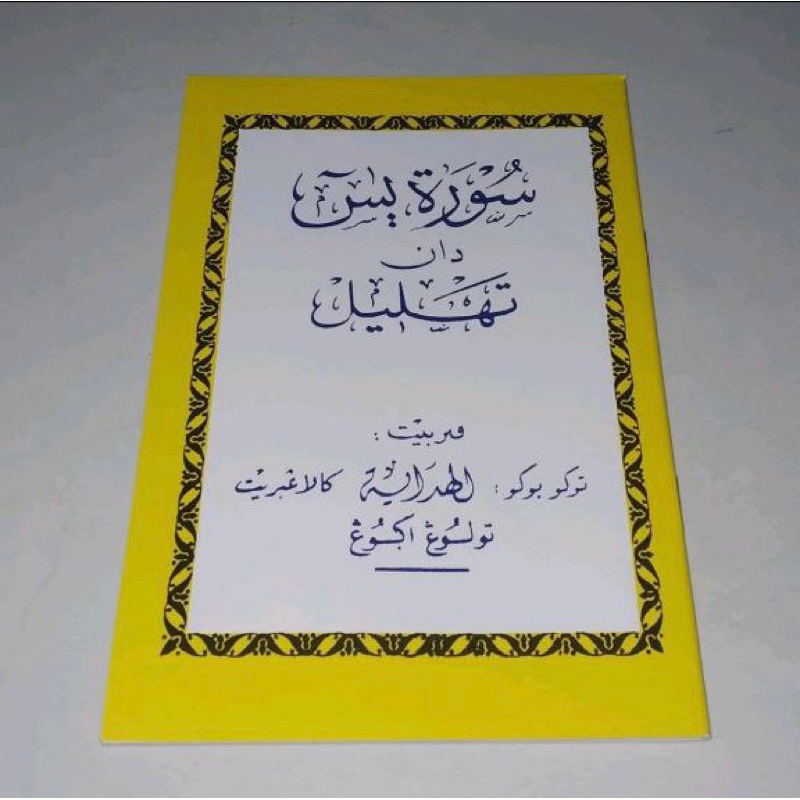 سُوْرَة يٰسٓ
دان
تَهْلِيْل
ڤربيت :
توكو بوكو : الهِدَاية كالاڠبريت
تولوڠ اݢوڠ